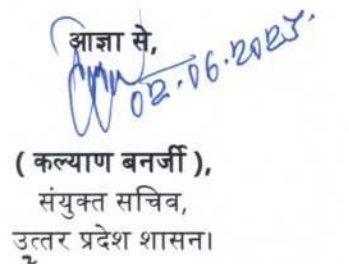 आज्ञा से,
02.06.2025.
( कल्याण बनर्जी ),
संयुक्त सचिव,
उत्तर प्रदेश शासन।